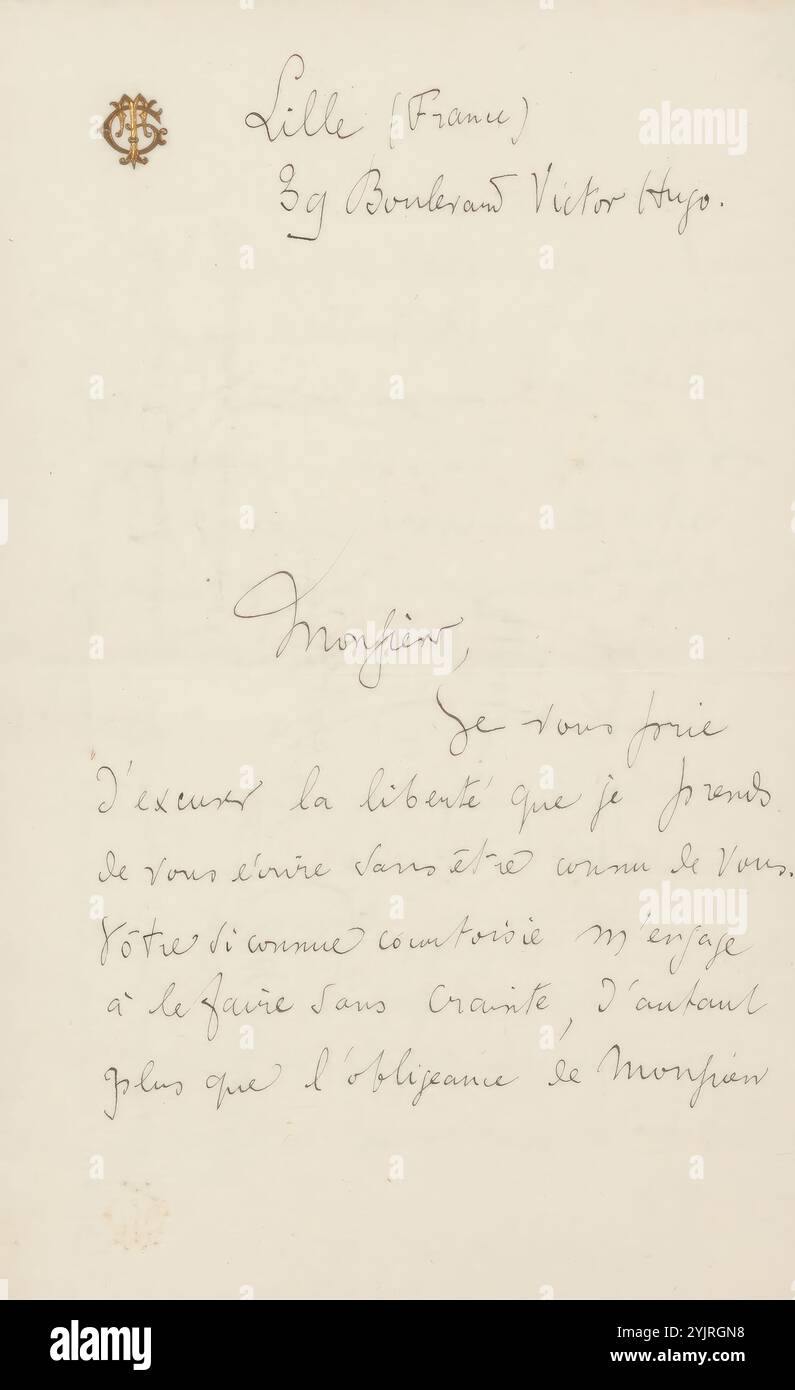 Lille (France)
39 Boulevard Victor Hugo.
Monsieur,
Je vous prie
d'excuser la liberté que je prends
de vous écrire sans être connu de vous.
Vôtre si connue courtoisie m'engage
à le faire sans crainte, d'autant
plus que l'obligeance de Monsieur
alamy
Image ID: 2YJRGN8
www.alamy.com